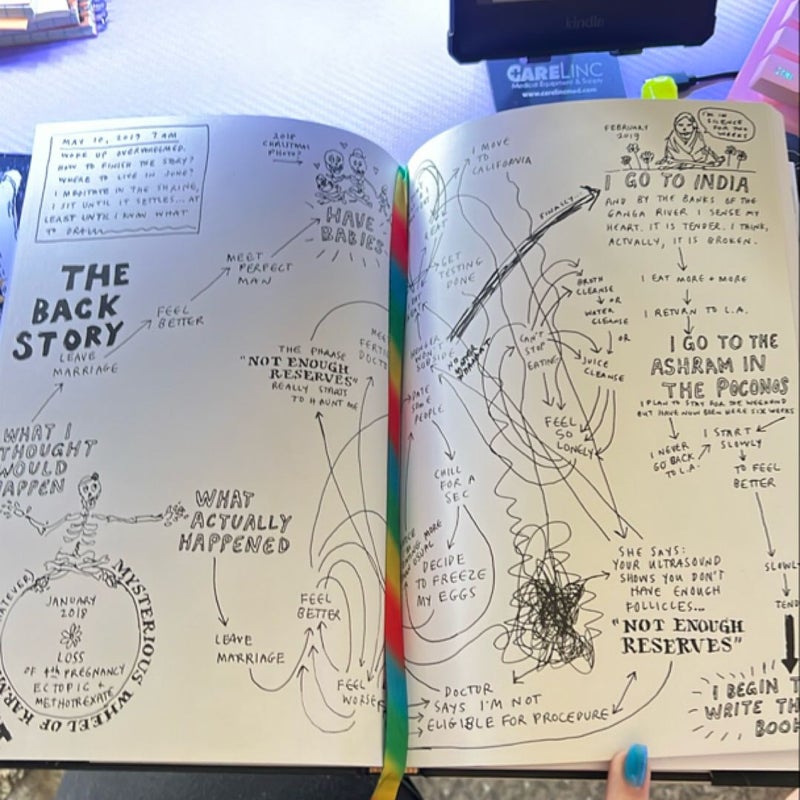 kindle
CARELINC
Medical Equipment & Supply
www.carelincmed.com
MAY 10, 2019 7 AM
WOKE UP OVERWHELMED.
HOW TO FINISH THE STORY?
WHERE TO LIVE IN JUNE?
I MEDITATE IN THE SHRINE,
I SIT UNTIL IT SETTLES... AT
LEAST UNTIL I KNOW WHAT
TO DRAW
2018
CHRISTMAS
PHOTO?
HAVE
BABIES
MEET
PERFECT
MAN
THE
BACK
STORY
FEEL
BETTER
LEAVE
MARRIAGE
WHAT I
THOUGHT
WOULD
HAPPEN
THE PHRASE
"NOT ENOUGH
RESERVES"
REALLY STARTS
TO HAUNT ME
WHAT
ACTUALLY
HAPPENED
LEAVE
MARRIAGE
FEEL
BETTER
FEEL
WORSE
MYSTERIOUS WHEEL OF
JANUARY
2018
LOSS
OF 4TH PREGNANCY
ECTOPIC +
METHOTREXATE
I MOVE
TO
CALIFORNIA
EAT
GET
TESTING
DONE
HUNGER
WON'T
SUBSIDE
DATE
SOME
PEOPLE
CHILL
FOR A
SEC
MORE
USUAL
DECIDE
TO FREEZE
MY EGGS
DOCTOR
SAYS I'M NOT
ELIGIBLE FOR PROCEDURE
FINALLY
CAN'T
STOP
EATING
BROTH
CLEANSE
OR
WATER
CLEANSE
OR
JUICE
CLEANSE
FEEL
SO
LONELY
SHE SAYS:
YOUR ULTRASOUND
SHOWS YOU DON'T
HAVE ENOUGH
FOLLICLES...
"NOT ENOUGH
RESERVES"
FEBRUARY
2019
I'M IN
SILENCE
FOR TWO
WEEKS
I GO TO INDIA
AND BY THE BANKS OF THE
GANGA RIVER I SENSE MY
HEART. IT IS TENDER. I THINK,
ACTUALLY, IT IS BROKEN.
I EAT MORE + MORE
I RETURN TO L.A.
I GO TO THE
ASHRAM IN
THE POCONOS
I PLAN TO STAY FOR THE WEEKEND
BUT HAVE NOW BEEN HERE SIX WEEKS
I NEVER
GO BACK
TO L.A.
I START
SLOWLY
TO FEEL
BETTER
SLOWL
TEND
I BEGIN T
WRITE TH
BOOK